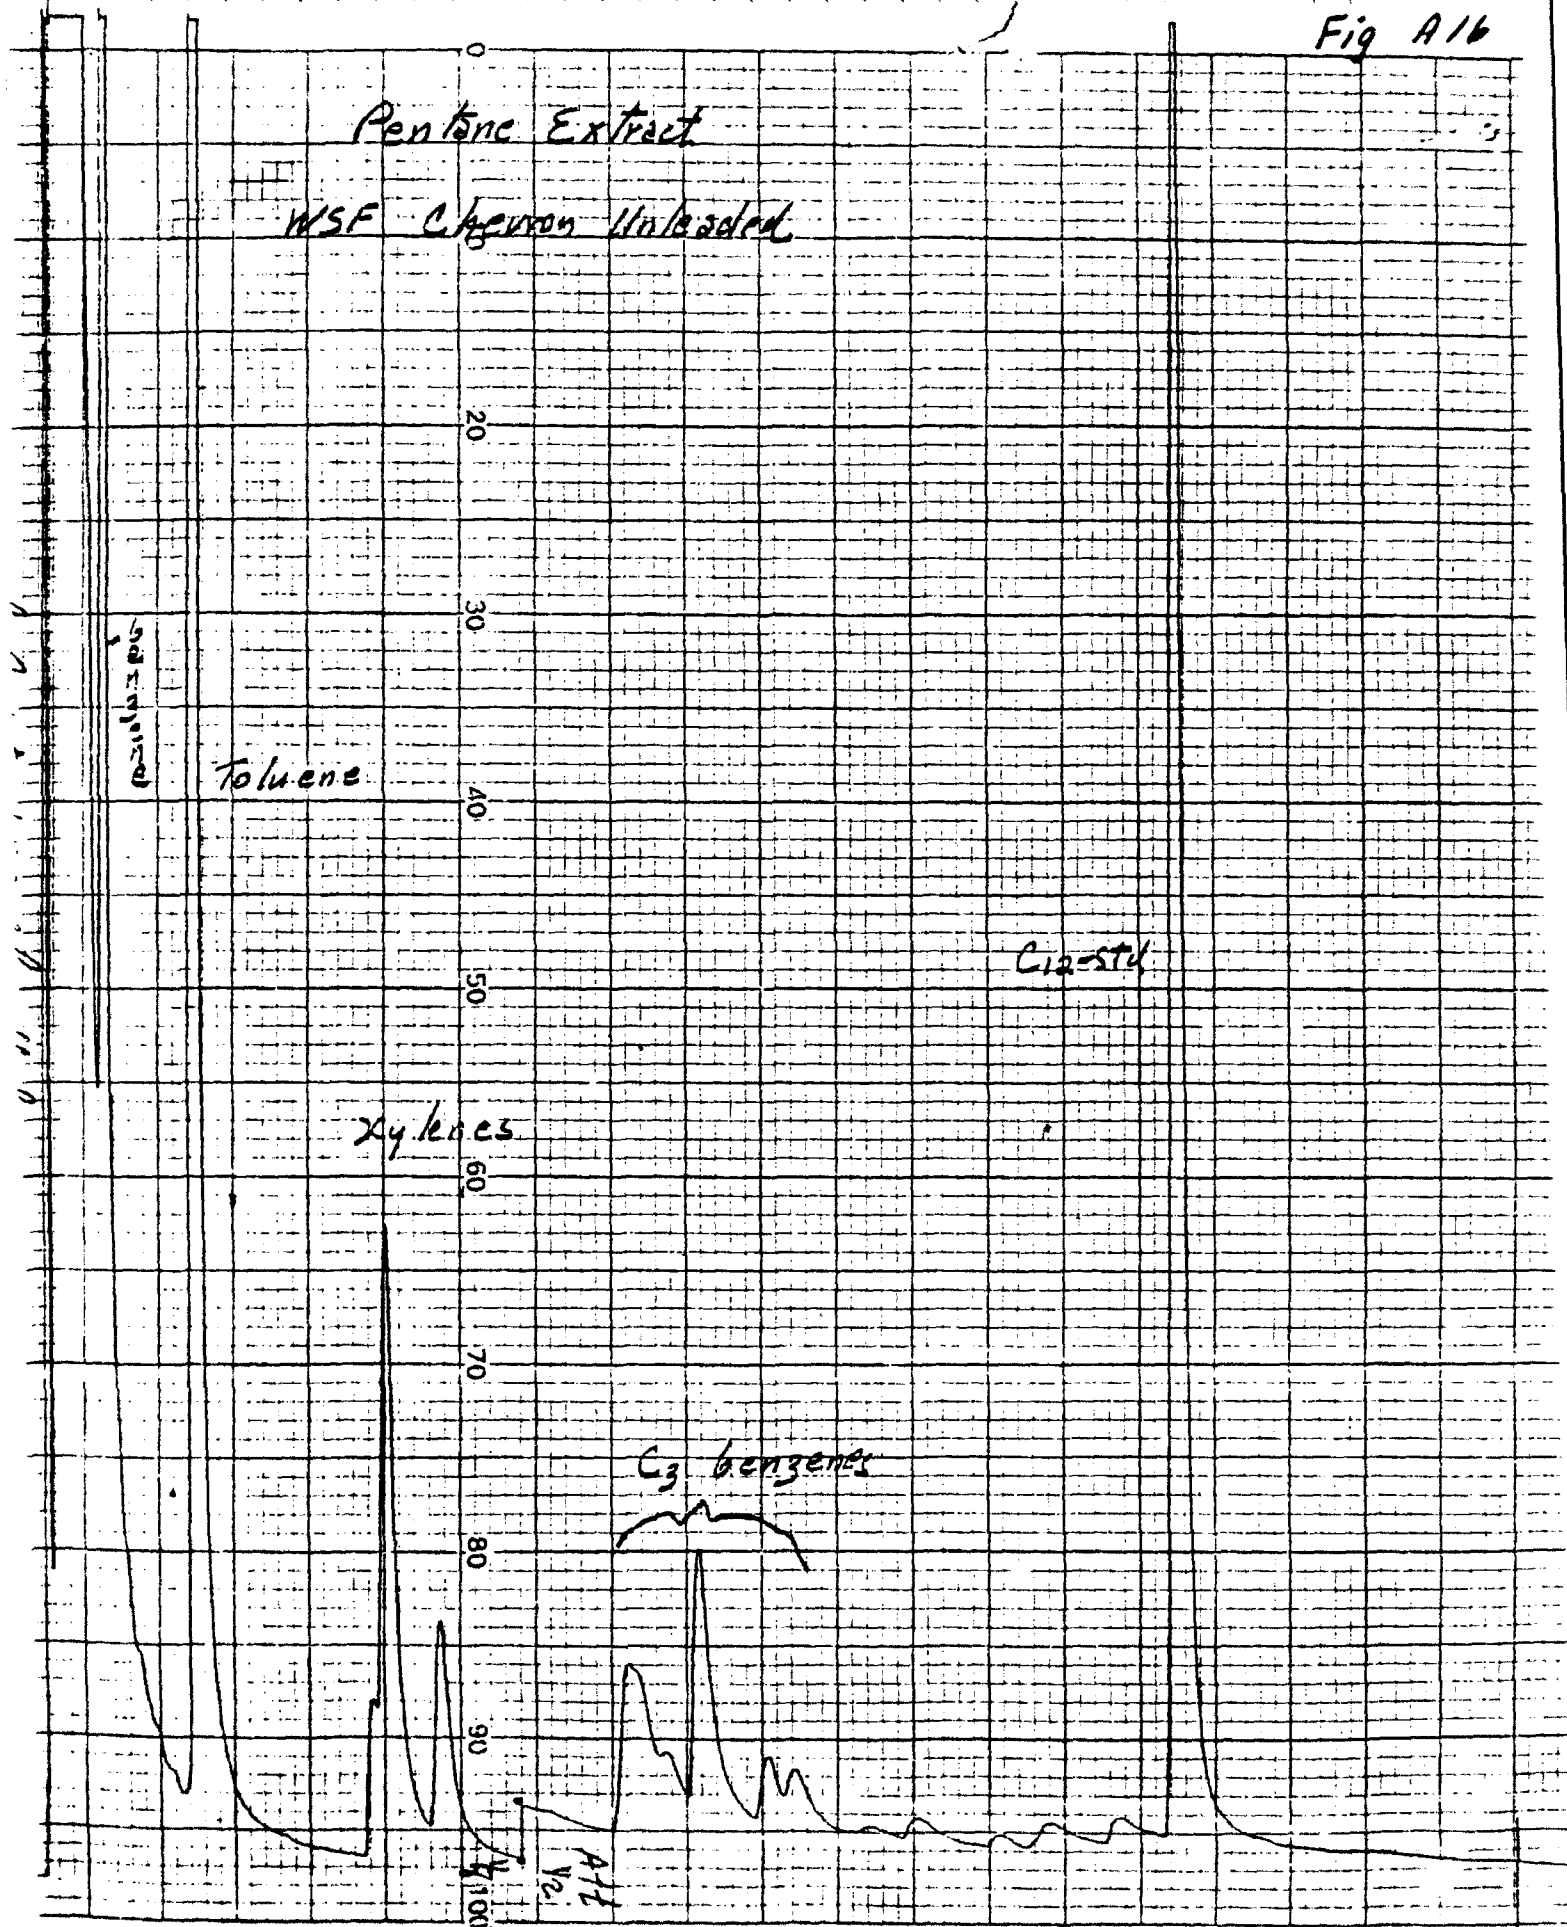 Fig A16
0
Pentane Extract
WSF Chevron Unleaded
20
30
Toluene
40
C12-std
50
Xylenes
60
70
C3 benzenes
80
90
Att
1/2
100